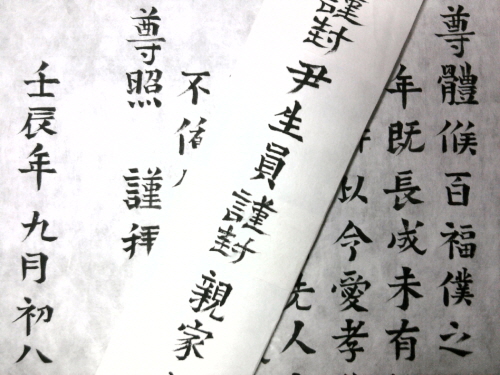 尊體候百福僕之
年既長成未有
以今愛孝
先人
不備
尊照 謹拜
壬辰年 九月 初八
謹封 尹生員 謹封 親家